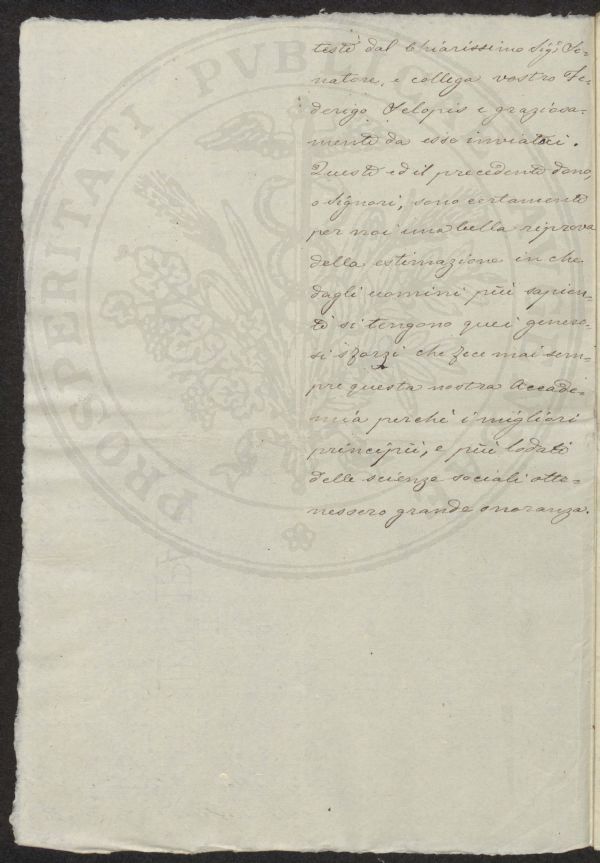 testè dal Chiarissimo Sig.r Se-
natore, e collega vostro Fe-
derigo Sclopis e graziosa-
mente da esso inviatoci.
Questo ed il precedente dono,
o Signori, sono certamente
per noi una bella riprova
della estimazione in che
dagli uomini più sapien-
ti si tengono quei genero-
si sforzi che fece mai sem-
pre questa nostra Accade-
mia perchè i migliori
principii, e più lodati
delle scienze sociali otte-
nessero grande onoranza.
PROSPERITATI PVBLICAE